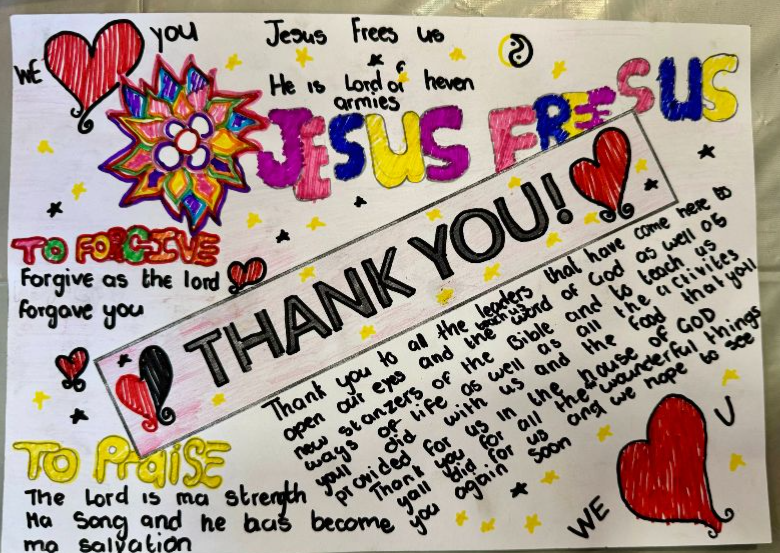 WE
YOU
Jesus Frees us
He is Lord of heven
armies
JESUS FREES US
TO FORGIVE
Forgive as the lord
forgave you
THANK YOU!
Thank you to all the leaders that have come here to
open our eyes and teach us the word of God as well as
new stanzers of the Bible and to teach us
ways of life as well as all the activites
you'll did with us and the food that yall
provided for us in the house of GOD
Thank you for all the wounderful things
yall did for us and we hope to see
you again soon
TO PRaiSE
The Lord is ma strength
Ma Song and he has become
ma salvation
WE
U